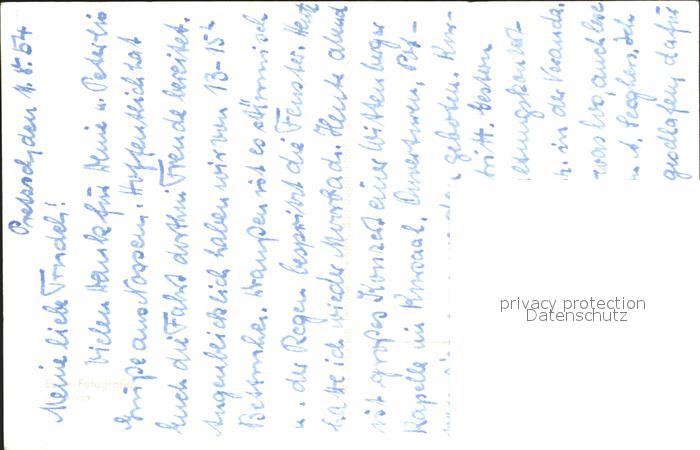 Pretzsch, den 1.8.54
Meine liebe Trudel!
Vielen Dank für Deine u. Peterles
Grüße aus Nossen. Hoffentlich hat
Euch die Fahrt dorthin Freude bereitet.
Augenblicklich haben wir von 13-15h
Bettruhe. Draußen ist es stürmisch
u. der Regen bespritzt die Fenster. Heut
hatte ich wieder Moorbad. Heute abend
ist großes Konzert einer Wittenberger
Kapelle im Kursaal. Ouvertüren, Pot-
geboten.
ritt. bestem
in der Veranda.
was los, auch
geschlafen, dafür
privacy protection
Datenschutz
Fotograf